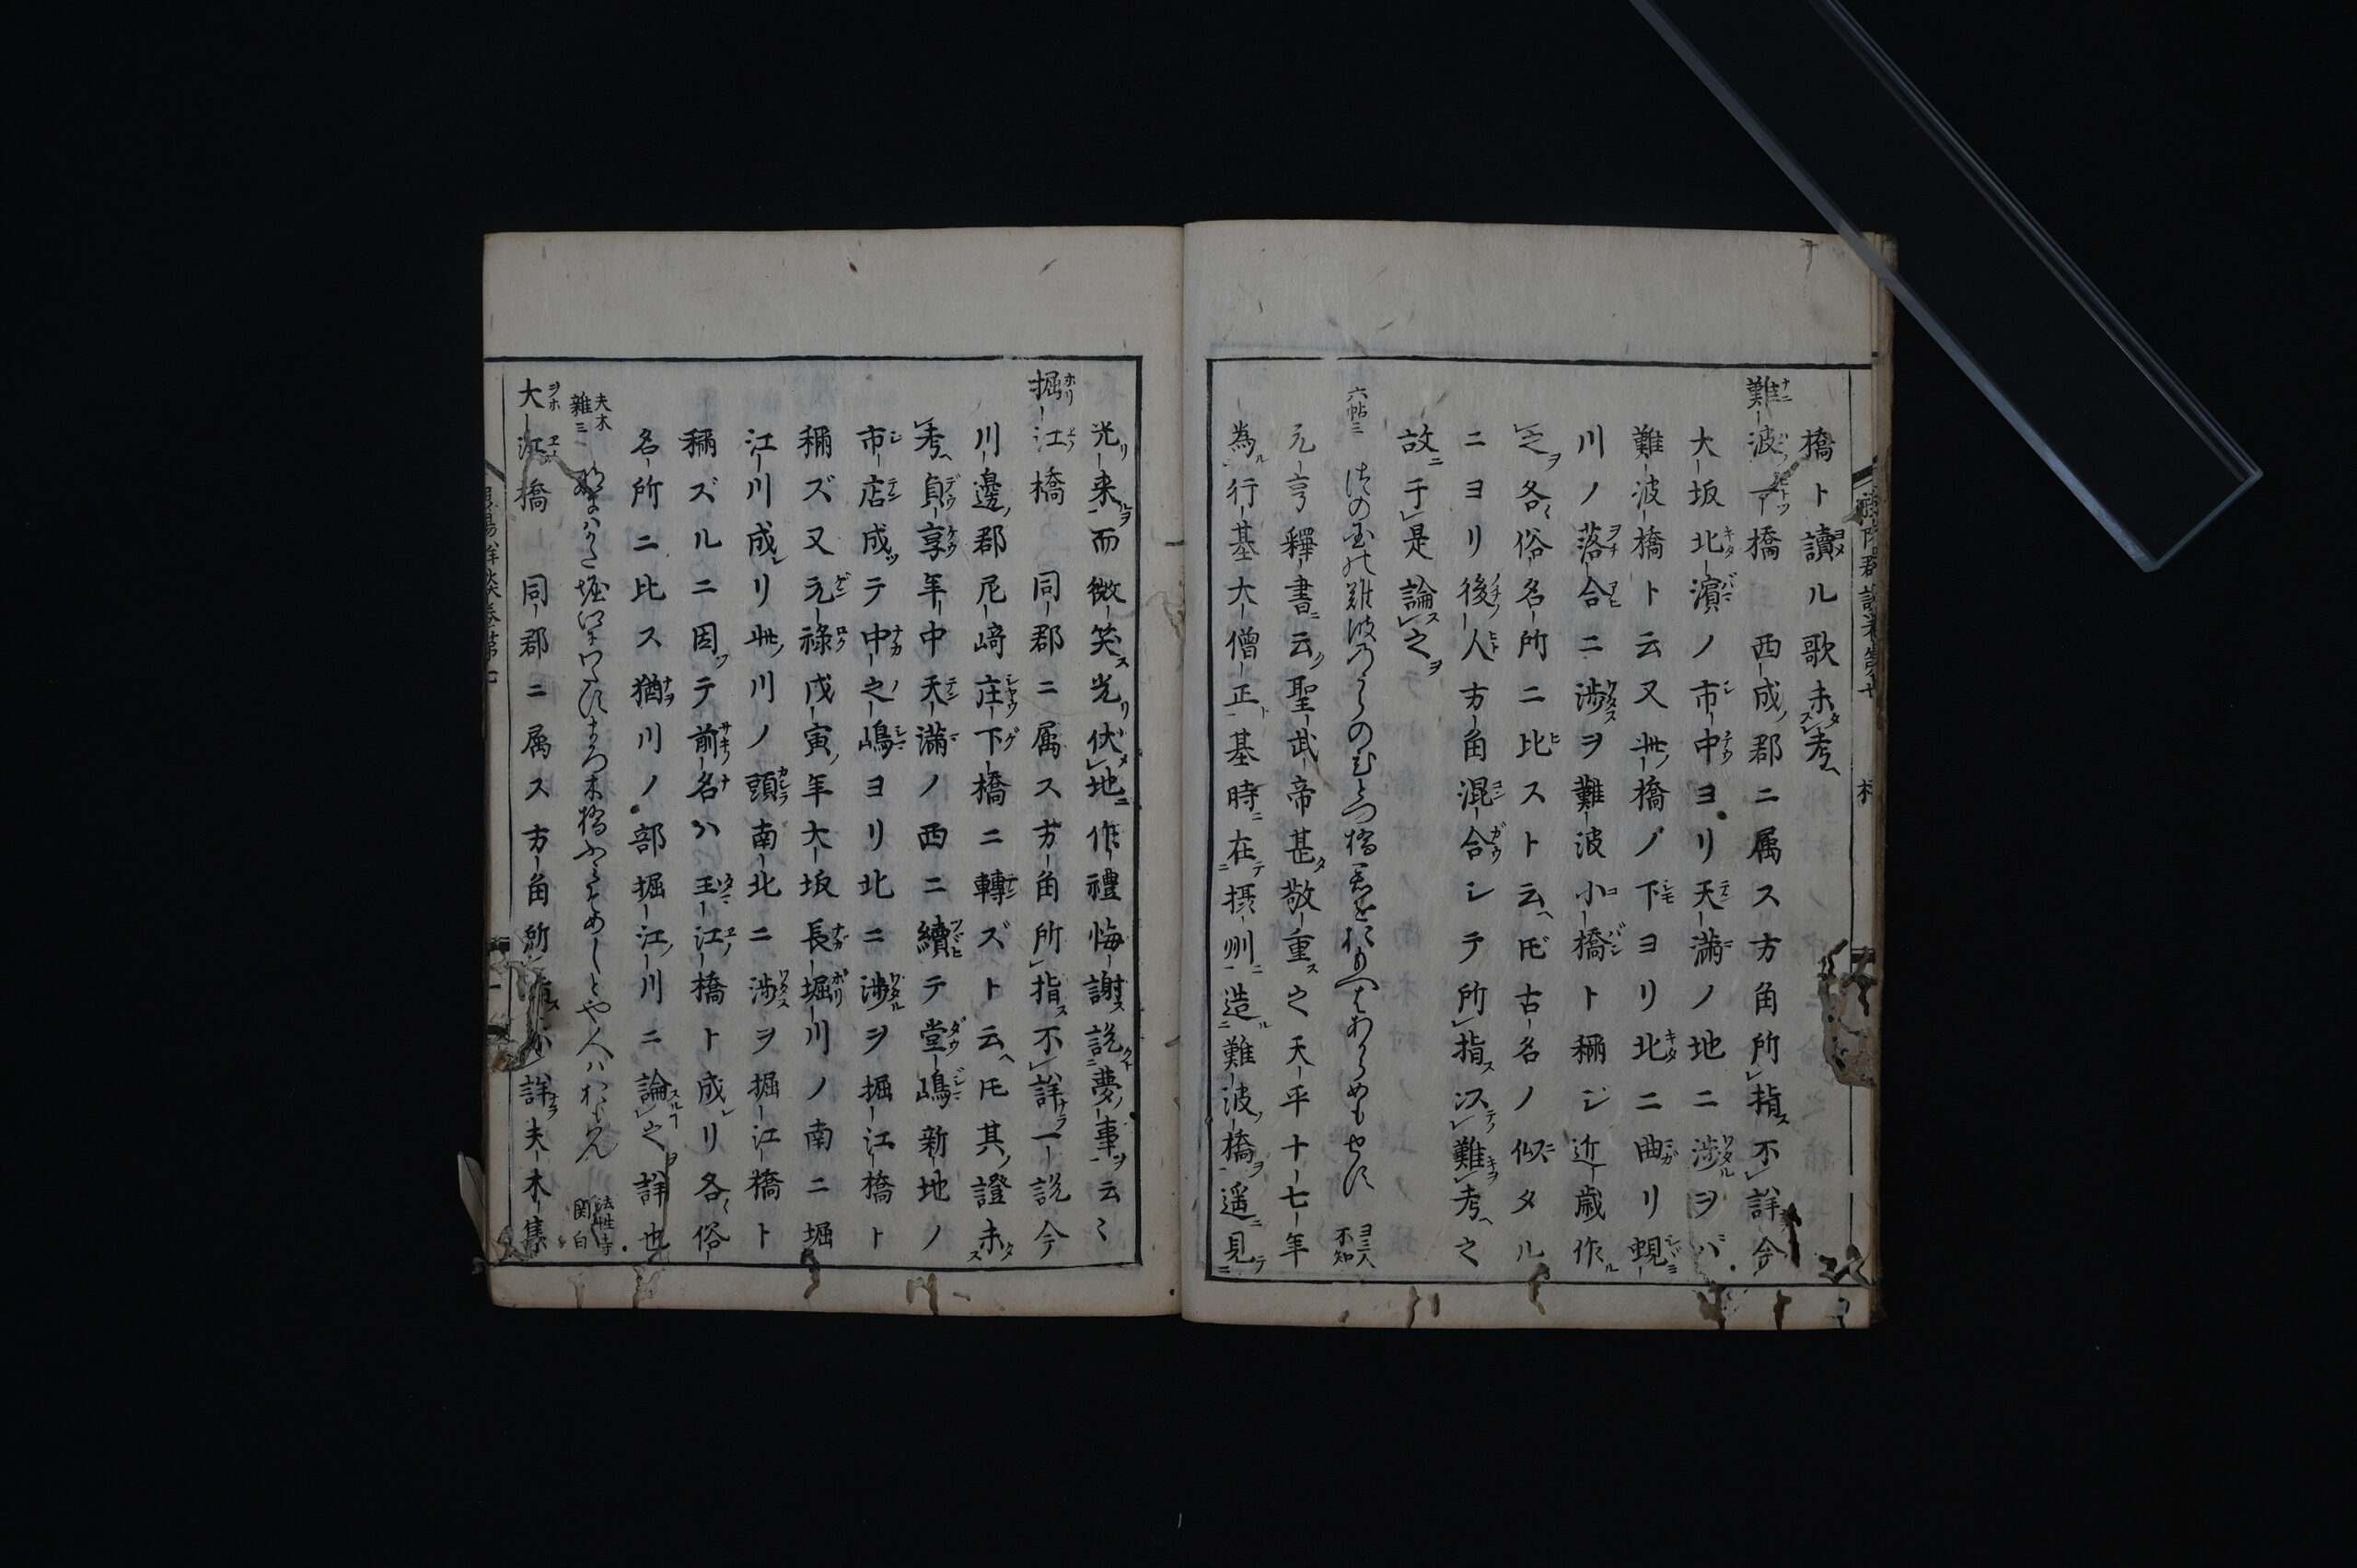 橋ト讀ル歌未考
難波一橋 西成郡ニ属ス方角所指不詳今
大坂北濱ノ市中ヨリ天満ノ地ニ渉ヲバ
難波橋ト云又此橋ノ下ヨリ北ニ曲リ蜆
川ノ落合ニ渉ヲ難波小橋ト稱ジ近歳作
之各俗名所ニ比スト云ヘ𪜈古名ノ似タル
ニヨリ後人方角混合シテ所指以難考之
故于是論之
六帖三 津の国の難波のうらのひとつ橋君をおもへはあからめもせす ヨミ人不知
元亨釋書云聖武帝甚敬重之天平十七年
為行基大僧正基時在摂州造難波橋遥見
光来而微笑光伏地作禮悔謝説夢事云〻
掘江橋 同郡ニ属ス方角所指不詳一説今
川邊郡尼﨑庄下橋ニ轉ズト云ヘ𪜈其證未
考貞享年中天満ノ西ニ續テ堂嶋新地ノ
市店成テ中之嶋ヨリ北ニ渉ヲ掘江橋ト
稱ズ又元禄戊寅年大坂長堀川ノ南ニ堀
江川成リ此川ノ頭南北ニ渉ヲ掘江橋ト
稱ズルニ因テ前名ハ玉江橋ト成リ各俗
名所ニ比ス猶川ノ部掘江川ニ論之詳也
夫木雜三 堀江にわたす 橋 とや人はおもらん 法性寺関白
大江橋 同郡ニ属ス方角所指不詳夫木集